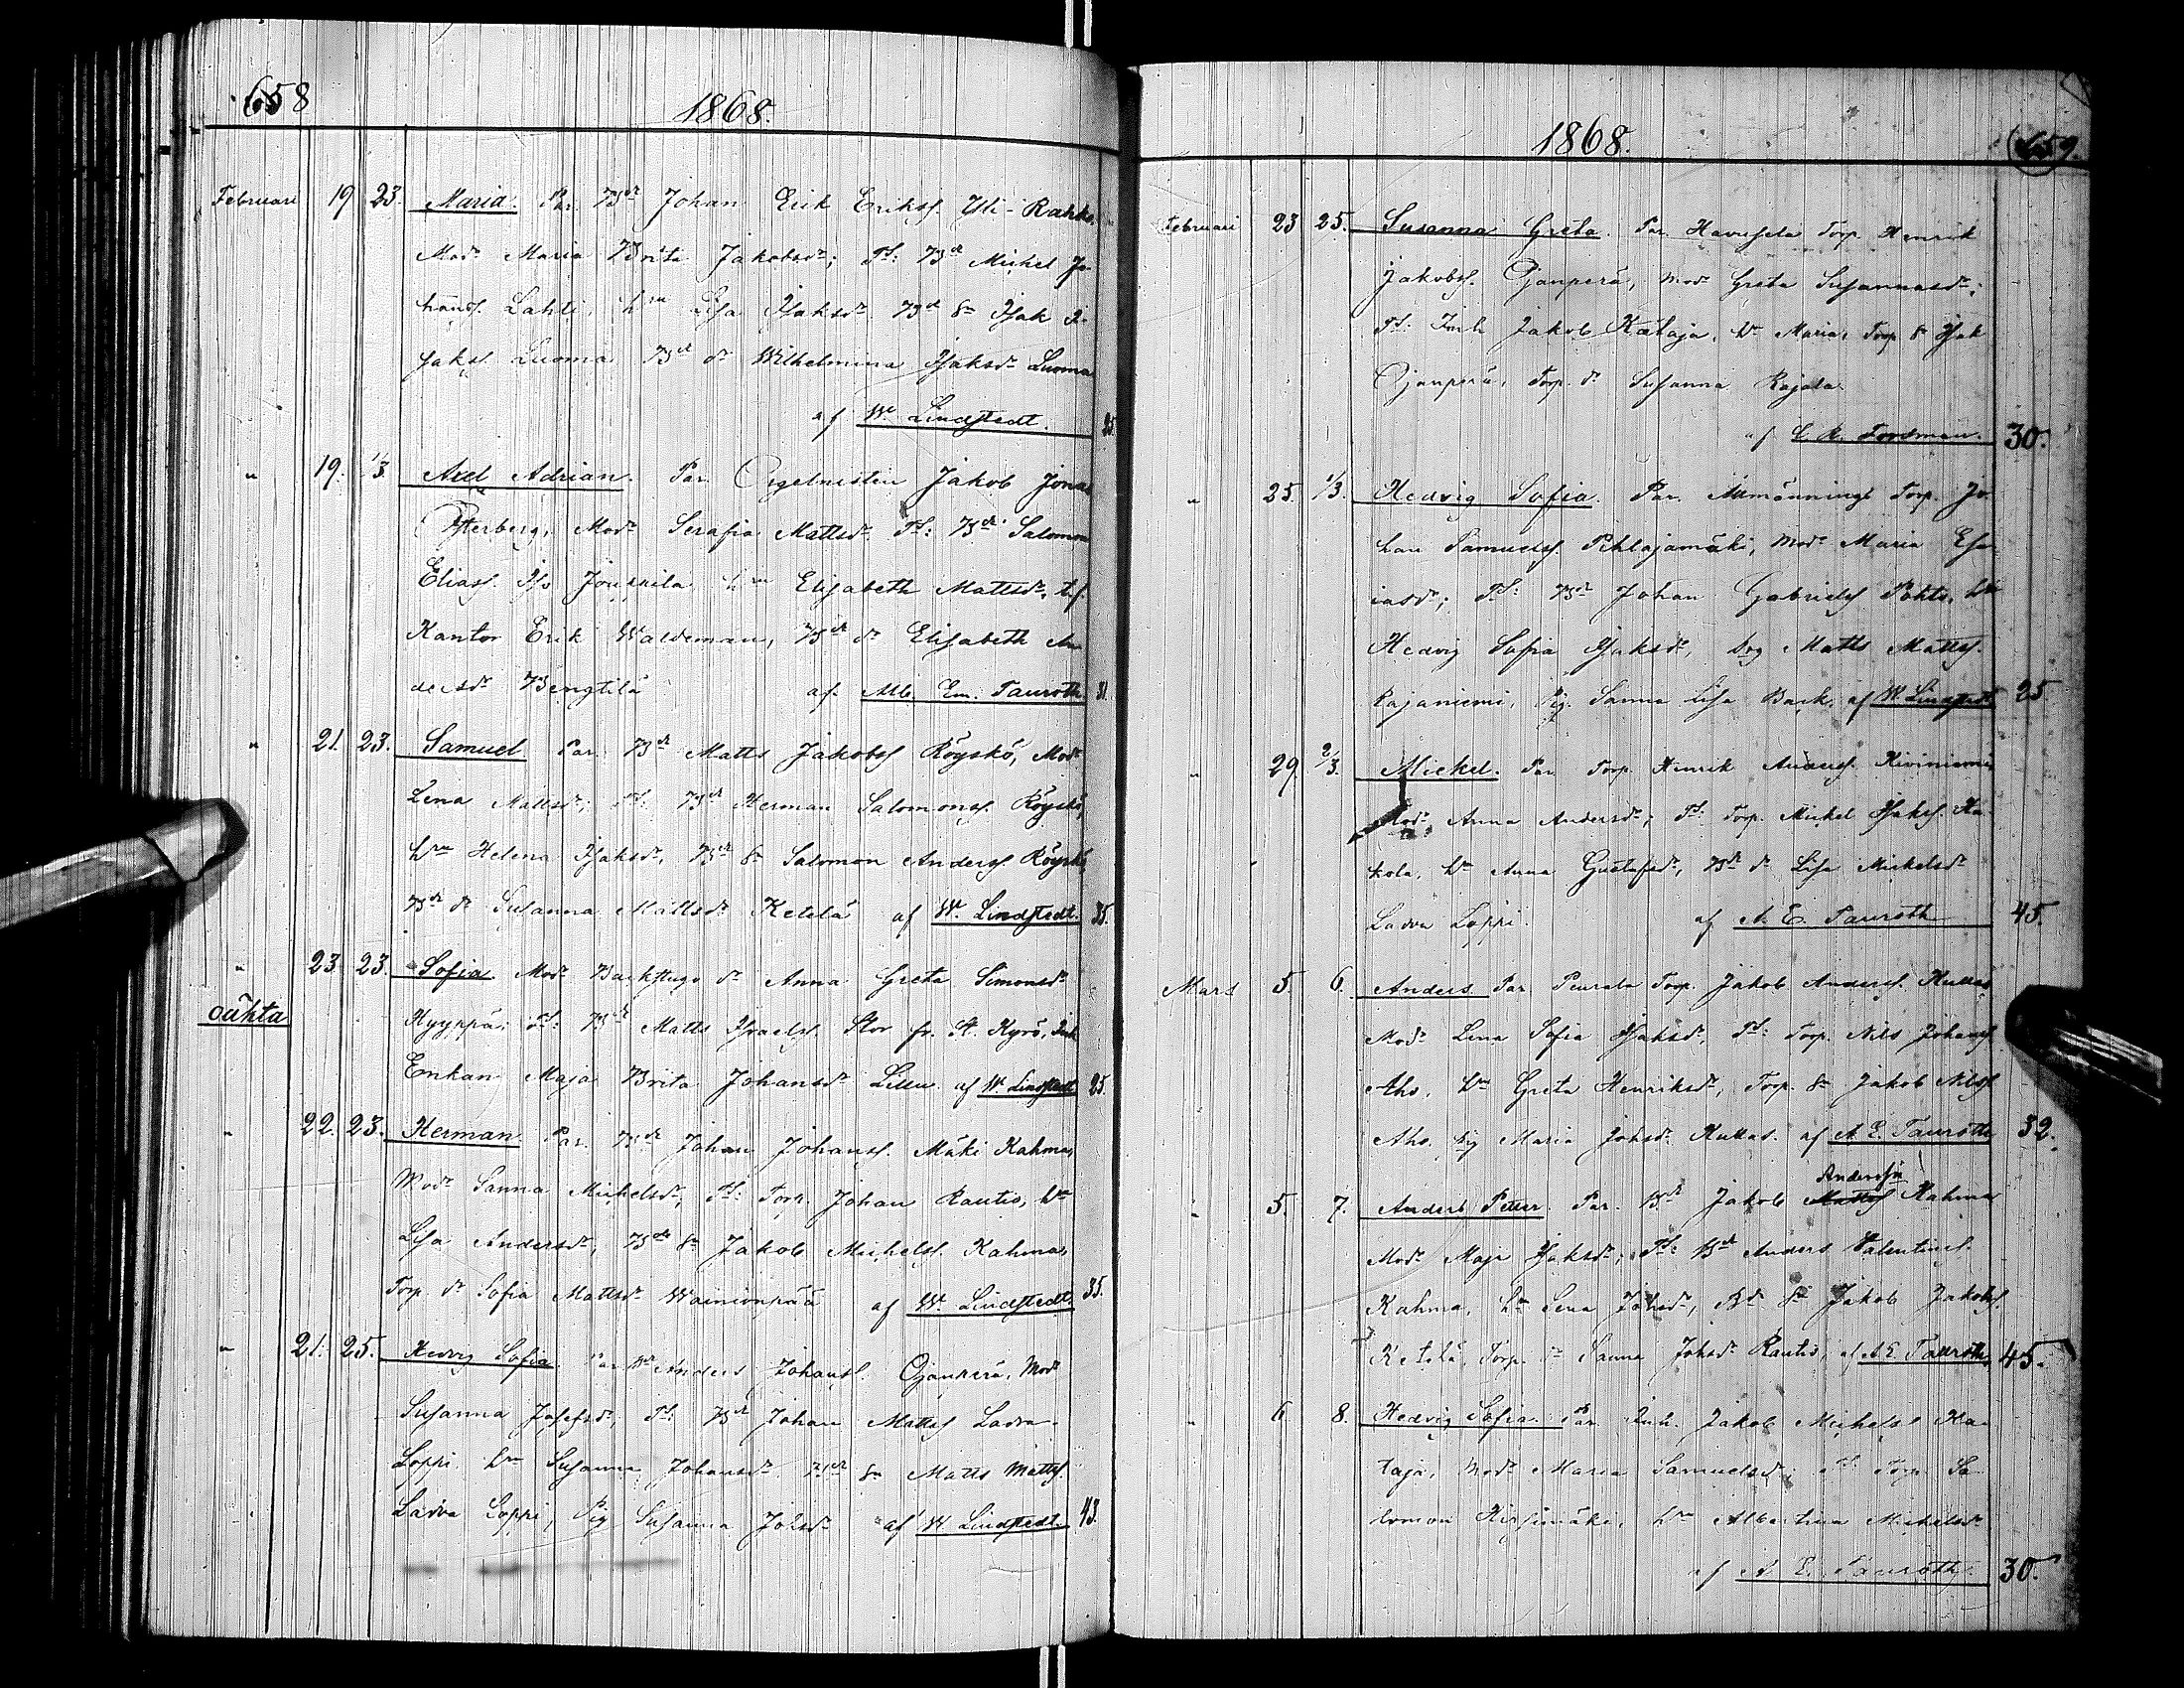 658
1868.
Februari 19 23. Maria. Par. Bd Johan Erik Erikss. Yli-Rahko,
Mod. Maria Brita Jakobsdr; Tst: Bd Michel Jo-
hanss. Lahti, hru Lisa Isaksdr. Bd Sn Isak I-
saks. Luoma Bd dr Wilhelmina Isaksdr Luoma
af W. Lindstedt. 25.
" 19. 1/3 Axel Adrian. Par. Orgelnisten Jakob Jonas
Österberg, Mod. Serafia Mattsdr. Tst: Bd Salomon
Eliass. Iso Jouppila, hru Elisabeth Mattsdr, tf.
Kantor Erik Waldeman, Bd dr Elisabeth An-
dersdr Bengtilä af. Alb. Em. Tauroth 31.
" 21. 23. Samuel Par. Bd Matts Jakobss Röyskö, Modr
Lena Mattsdr; Tst: Bd Herman Salomonss. Röyskö,
hru Helena Isaksdr, Bd Sn Salomon Anderss Röyskö,
Bd dr Susanna Mattsdr Ketelä af W. Lindstedt. 35.
" 23. 23. Sofia Modr Backstugo dr Anna Greta Simonsdr
oäkta
Kyyppä; Tst: Bd Matts Israelss. Stor fr. St. Kyrö, Inh
Enkan Maja Brita Johansdr Lillu af W. Lindstedt 25.
" 22. 23. Herman Par. Bd Johan Johanss. Mäki Kahma,
Modr Sanna Michelsdr; Tst: Torp. Johan Rautio, hru
Lisa Andersdr, Bds Sn Jakob Michelss. Kahma,
Torp dr Sofia Mattsdr Wainionpää af W. Lindstedt. 35.
" 21. 25. Hedvig Sofia. Par Bd Anders Johanss. Ojanperä, Modr
Susanna Josefsdr; Tst: Bd Johan Mattss Ladva-
Loppi hru Susanna Johansdr. Bd Sn Matts Mattss.
Ladva Loppi, Pig Susanna Johsdr af W. Lindstedt. 43.
1868.
659.
Februari 23 25. Susanna Greta. Par. Havusela Torp Henrik
Jakobss. Ojanperä, Modr Greta Susannasdr;
Tst: Inh Jakob Kataja, hru Maria, Torp Sn Isak
Ojanperä, Torp. dr Susanna Rajala.
af C. R. Forsman. 30.
" 25. 1/3. Hedvig Sofia. Par. Allmännings Torp. Jo-
han Samuelss. Pihlajamäki, Modr Maria Esa-
iasdr; Tst: Bd Johan Gabrielss Pohto, hru
Hedvig Sofia Isaksdr, Drg Matts Mattss.
Rajaniemi, Pig. Sanna Lisa Back. af W. Lindstedt 25
" 29. 2/3. Mickel. Par Torp. Henrik Anderss. Kiviniemi,
Modr Anna Andersdr; Tst: Torp. Mickel Isakss. Ha-
kola, hru Anna Gustafsdr, Bd dr Lisa Mickelsdr
Ladva Loppi. af A. E. Tauroth 45.
Mars 5. 6. Anders Par Peurala Torp. Jakob Anderss. Kukas
Modr Lina Sofia Isaksdr, Tst: Torp. Nils Johanss
Aho, hru Greta Henriksdr, Torp. Sn Jakob Nilss
Aho, Pig Maria Johsdr Kukas. af A. E. Tauroth 32.
Anderss
" 5. 7. Anders Petter Par. Bd Jakob Mattss Kahma
Modr Maja Isaksdr; Tst: Bd Anders Valentinss.
Kahma, hru Lena Johsdr, Bd Sn Jakob Jakobss.
Ketelä, Torp. dr Sanna Johsdr Rautio, af A E. Tauroth 45.
" 6 8. Hedvig Sofia. Par Inh. Jakob Michelss Ka-
taja, Modr Maria Samuelsdr; Tst Torp. Sa-
lomon Hirsimäki, hru Albertina Michelsdr
af A E. Tauroth 30.